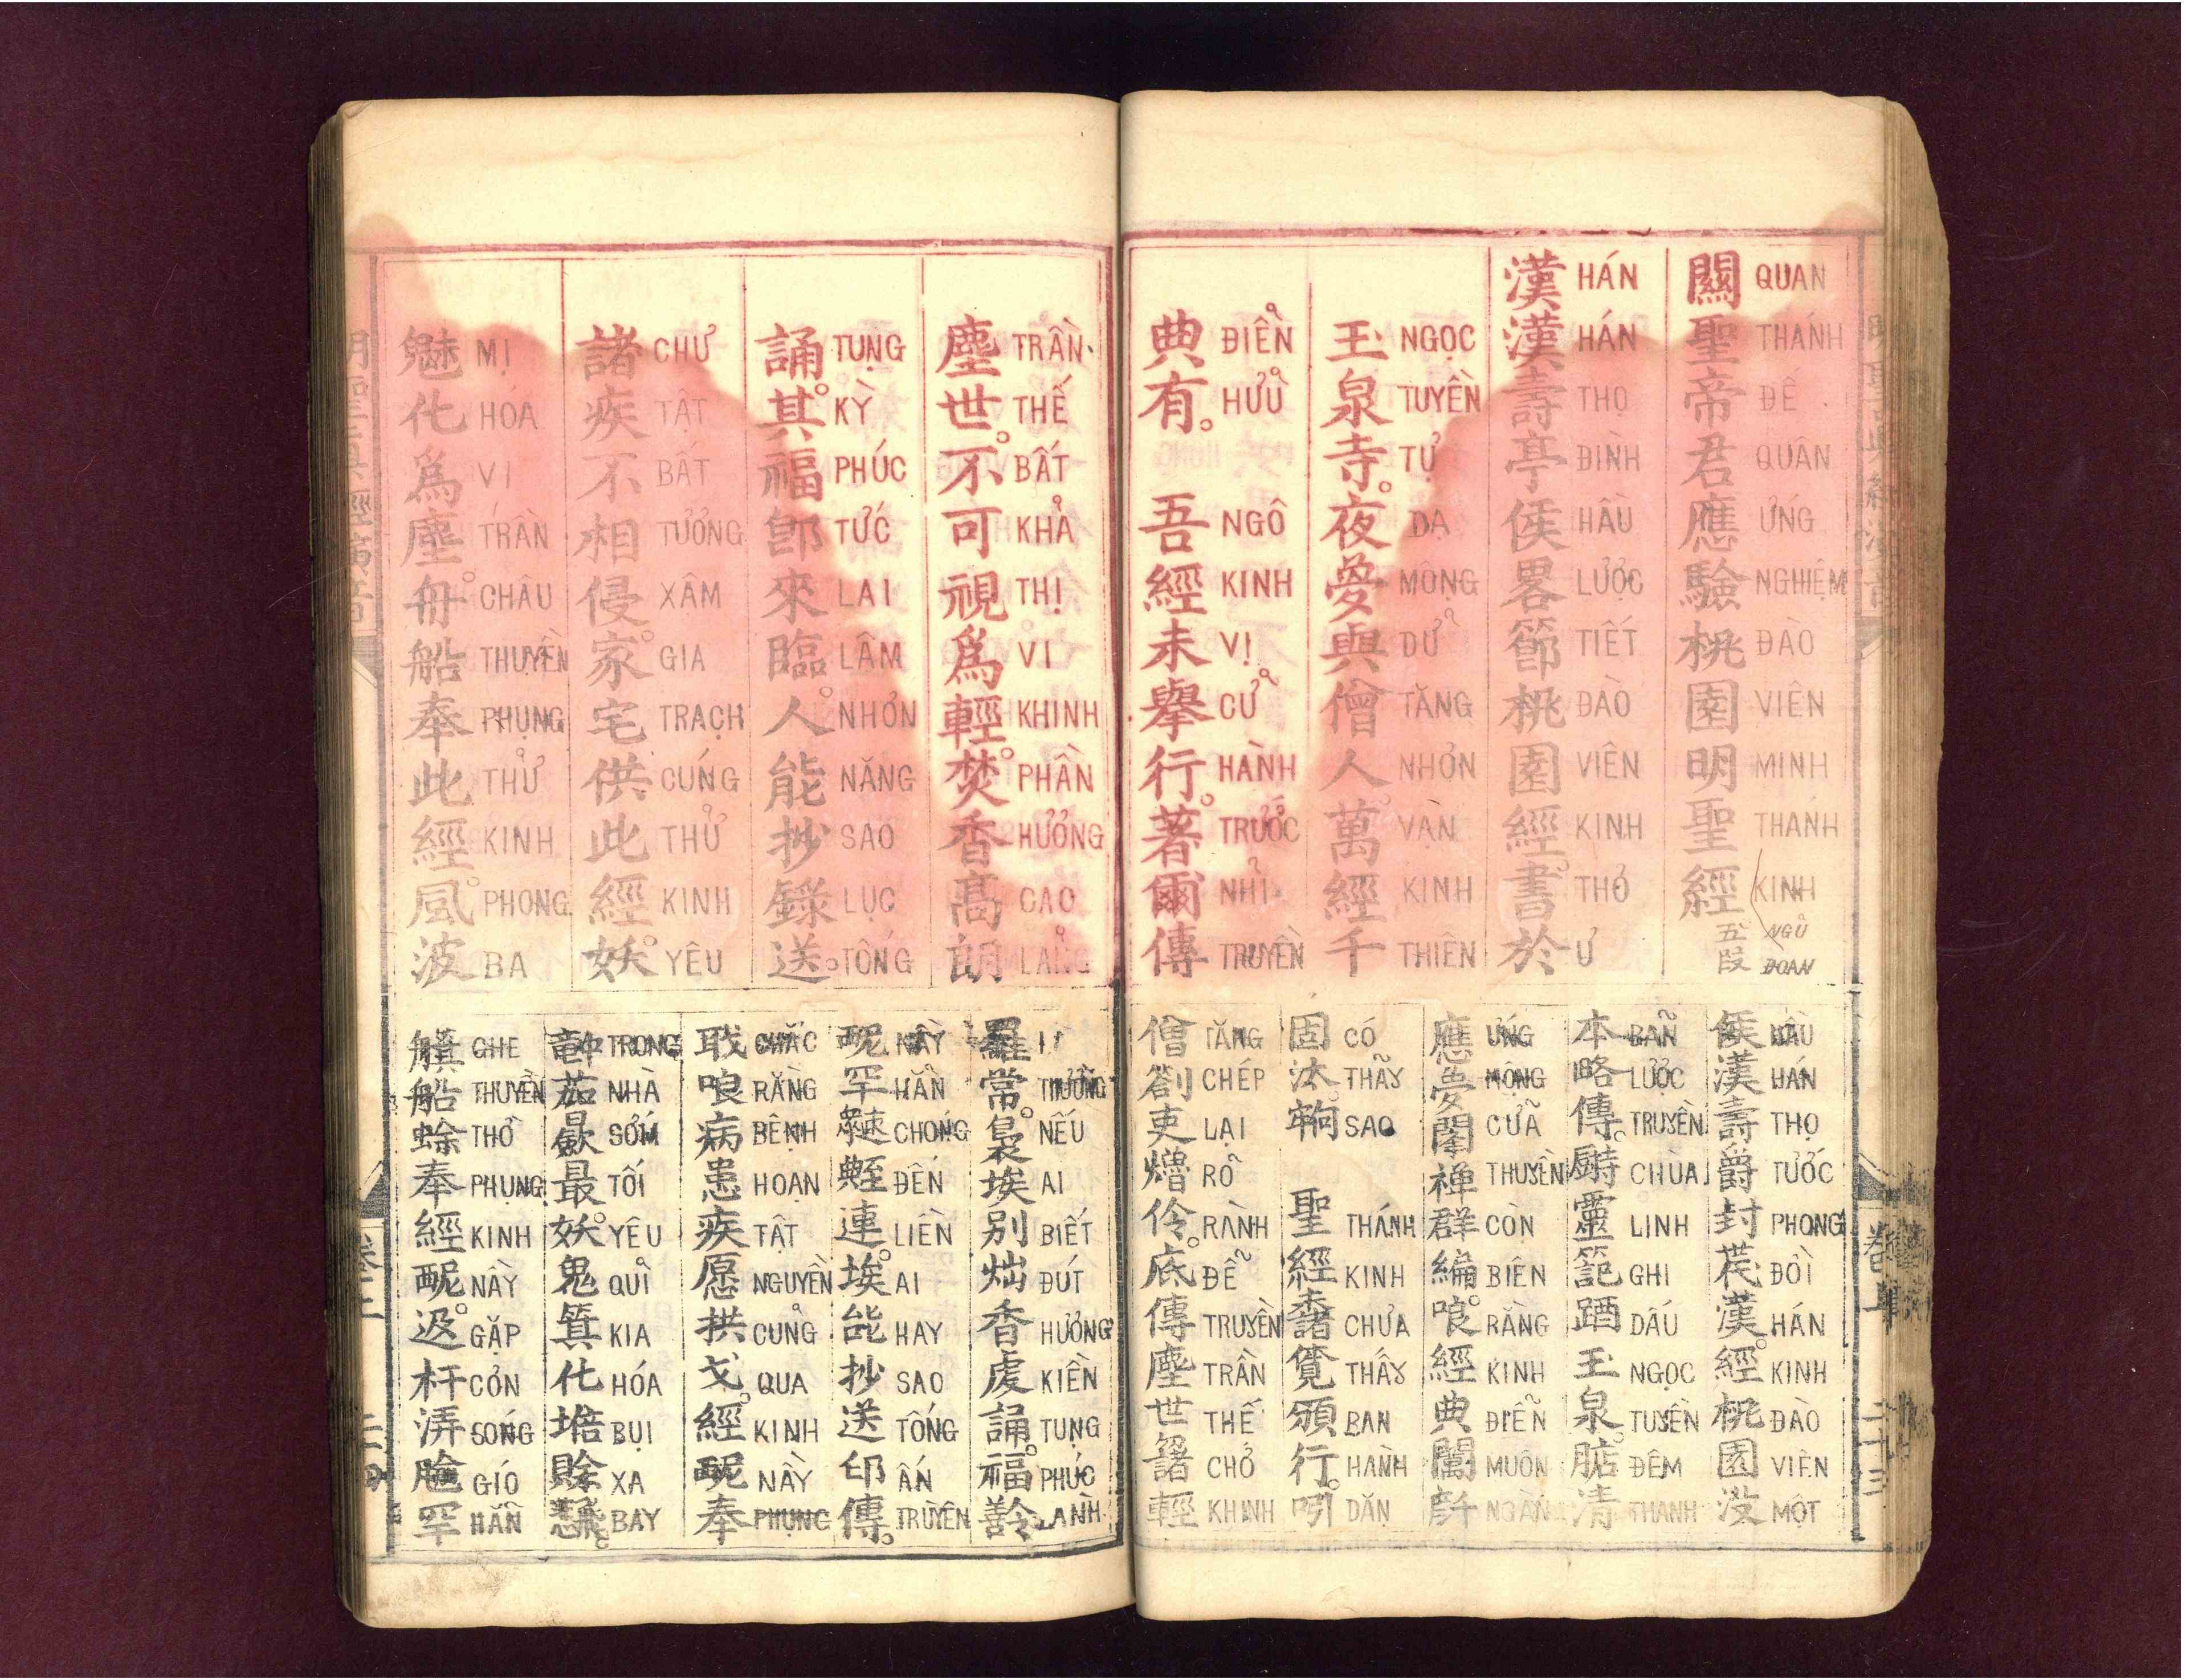 關聖帝君應驗桃園明聖經 五段
QUAN THÁNH ĐẾ QUÂN ỨNG NGHIỆM ĐÀO VIÊN MINH THÁNH KINH NGŨ ĐOẠN
漢漢壽亭侯畧節桃園經書於
HÁN HÁN THỌ ĐÌNH HẦU LƯỢC TIẾT ĐÀO VIÊN KINH THƠ Ư
玉泉寺。夜夢與僧人。萬經千
NGỌC TUYỀN TỰ DẠ MỘNG DỮ TĂNG NHƠN VẠN KINH THIÊN
典有。吾經未舉行。著爾傳
ĐIỂN HỮU NGÔ KINH VỊ CỬ HÀNH TRƯỚC NHĨ TRUYỀN
侯漢壽爵封𦲾漢。經桃園沒
HẦU HÁN THỌ TƯỚC PHONG ĐỜI HÁN KINH ĐÀO VIÊN MỘT
本略傳。廚靈𥱬𨠳玉泉。䏾清
BẢN LƯỢC TRUYỀN CHÙA LINH GHI DẤU NGỌC TUYỀN ĐÊM THANH
應夢𨷶禪群編。哴經典𨷈𠦳
ỨNG MỘNG CỬA THUYỀN CÒN BIÊN RẰNG KINH ĐIỂN MUÔN NGÀN
固汰𫳵。聖經𣜾覓頒行。吲
CÓ THẢY SAO THÁNH KINH CHƯA THẤY BAN HÀNH DẶN
僧劄吏熷伶。底傳塵世𡂳輕
TĂNG CHÉP LẠI RÕ RÀNH ĐỂ TRUYỀN TRẦN THẾ CHỚ KHINH
塵世。不可視爲輕。焚香髙朗
TRẦN THẾ BẤT KHẢ THỊ VI KHINH PHẦN HƯƠNG CAO LÃNG
誦。其福卽來臨。人能抄錄送。
TỤNG KỲ PHÚC TỨC LAI LÂM NHƠN NĂNG SAO LỤC TỐNG
諸疾不相侵。家宅供此經。妖
CHƯ TẬT BẤT TƯƠNG XÂM GIA TRẠCH CÚNG THỬ KINH YÊU
魅化爲塵。舟船奉此經。風波
MỊ HÓA VI TRẦN CHÂU THUYỀN PHỤNG THỬ KINH PHONG BA
羅常。裊埃別炪香虔誦。福𠶀
THƯỜNG NẾU AI BIẾT ĐÚT HƯƠNG KIỀN TỤNG PHÚC LÀNH
呢罕𨙛𦤾連。埃能抄送印傳。
NẦY HẲN CHÓNG ĐẾN LIỀN AI HAY SAO TỐNG ẤN TRUYỀN
聀哴病患疾愿拱戈。經呢奉
CHẮC RẰNG BỆNH HOẠN TẬT NGUYỀN CŨNG QUA KINH NẦY PHỤNG
𥪝茹𣋽最。妖鬼箕化𡏧賖𢒎
TRONG NHÀ SỚM TỐI YÊU QUỈ KIA HÓA BỤI XA BAY
船蜍奉經呢。𨒒杆㳥𩙌罕
GHE THUYỀN THỜ PHỤNG KINH NẦY GẶP CƠN SÓNG GIÓ HẲN